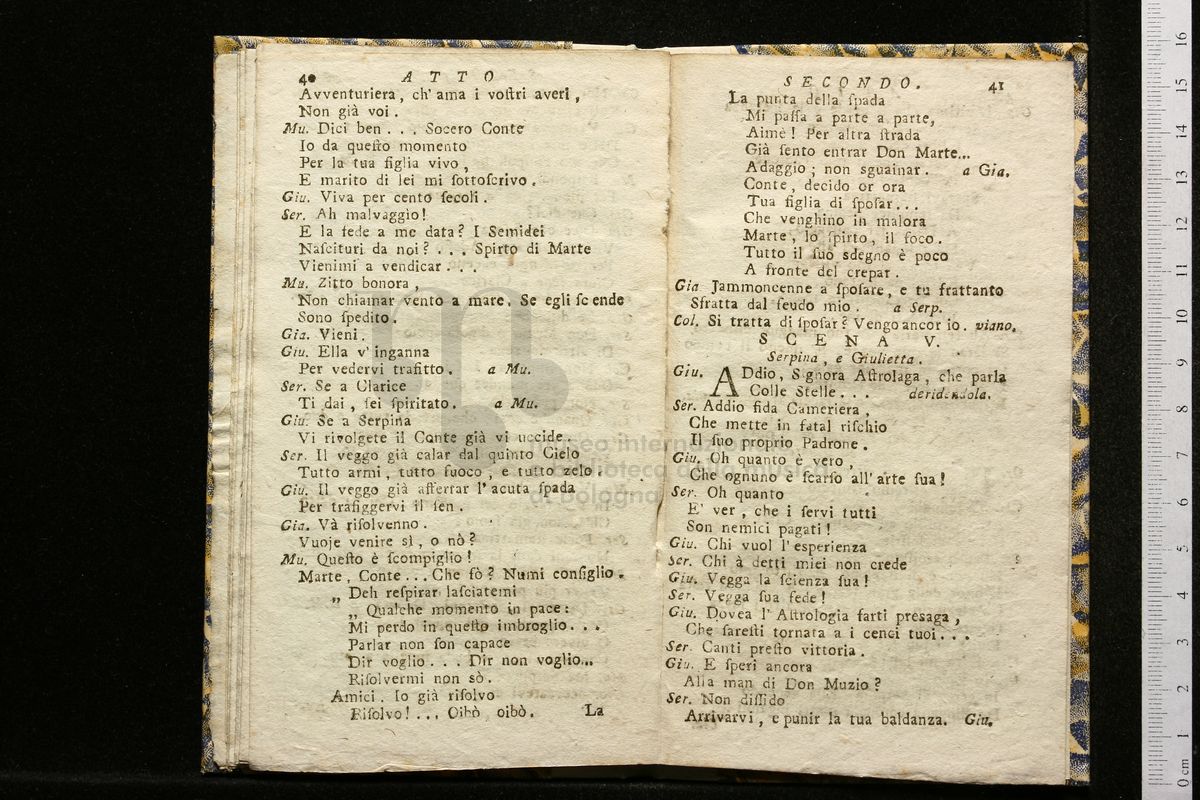 40 ATTO
Avventuriera, ch' ama i voſtri averi,
Non già voi.
Mu. Dici ben... Socero Conte
Io da queſto momento
Per la tua figlia vivo,
E marito di lei mi ſottoſcrivo.
Giu. Viva per cento ſecoli.
Ser. Ah malvaggio!
E la fede a me data? I Semidei
Naſcituri da noi?... Spirto di Marte
Vienimi a vendicar...
Mu. Zitto bonora,
Non chiamar vento a mare. Se egli ſcende
Sono ſpedito.
Gia. Vieni.
Giu. Ella v' inganna
Per vedervi trafitto. a Mu.
Ser. Se a Clarice
Ti dai, ſei ſpiritato. a Mu.
Giu. Se a Serpina
Vi rivolgete il Conte già vi uccide.
Ser. Il veggo già calar dal quinto Cielo
Tutto armi, tutto fuoco, e tutto zelo.
Giu. Il veggo già afferrar l' acuta ſpada
Per trafiggervi il ſen.
Gia. Và riſolvenno.
Vuoje venire sì, o nò?
Mu. Queſto è ſcompiglio!
Marte, Conte... Che fò? Numi conſiglio.
„ Deh reſpirar laſciatemi
„ Qualche momento in pace:
Mi perdo in queſto imbroglio...
Parlar non ſon capace
Dir voglio... Dir non voglio...
Riſolvermi non sò.
Amici. Io già riſolvo
Riſolvo!... Oibò, oibò. La
SECONDO. 41
La punta della ſpada
Mi paſſa a parte a parte,
Aimè! Per altra ſtrada
Già ſento entrar Don Marte...
Adaggio; non sguainar. a Gia.
Conte, decido or ora
Tua figlia di ſpoſar...
Che venghino in malora
Marte, lo ſpirto, il foco.
Tutto il ſuo sdegno è poco
A fronte del crepar.
Gia Jammoncenne a ſpoſare, e tu frattanto
Sfratta dal feudo mio. a Serp.
Col. Si tratta di ſpoſar? Vengo ancor io. viano.
SCENA V.
Serpina, e Giulietta.
Giu. ADdio, Signora Aſtrolaga, che parla
Colle Stelle... deridendola.
Ser. Addio fida Cameriera,
Che mette in fatal riſchio
Il ſuo proprio Padrone.
Giu. Oh quanto è vero,
Che ognuno è ſcarſo all' arte ſua!
Ser. Oh quanto
E' ver, che i ſervi tutti
Son nemici pagati!
Giu. Chi vuol l' eſperienza
Ser. Chi à detti miei non crede
Giu. Vegga la ſcienza ſua!
Ser. Vegga ſua fede!
Giu. Dovea l' Aſtrologia farti preſaga,
Che ſareſti tornata a i cenci tuoi...
Ser. Canti preſto vittoria.
Giu. E ſperi ancora
Alla man di Don Muzio?
Ser. Non diffido
Arrivarvi, e punir la tua baldanza. Giu.
museo internazionale
e biblioteca della musica
di bologna
0 cm 1 2 3 4 5 6 7 8 9 10 11 12 13 14 15 16